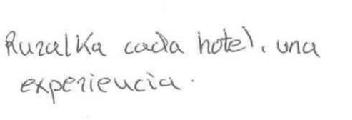 Ruralka cada hotel, una
experiencia.